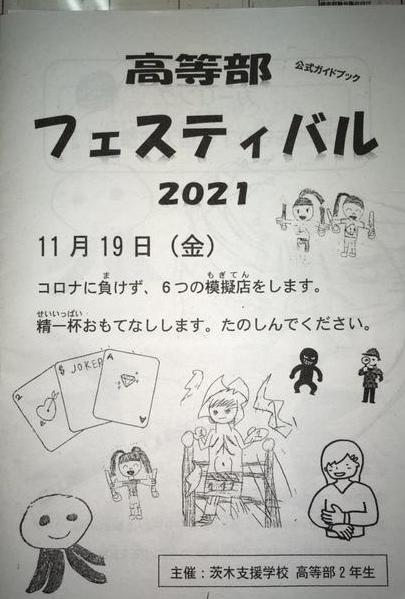 高等部
公式ガイドブック
フェスティバル
2021
11月19日（金）
コロナに負けず、６つの模擬店をします。
精一杯おもてなしします。たのしんでください。
JOKER
A
主催：茨木支援学校 高等部２年生